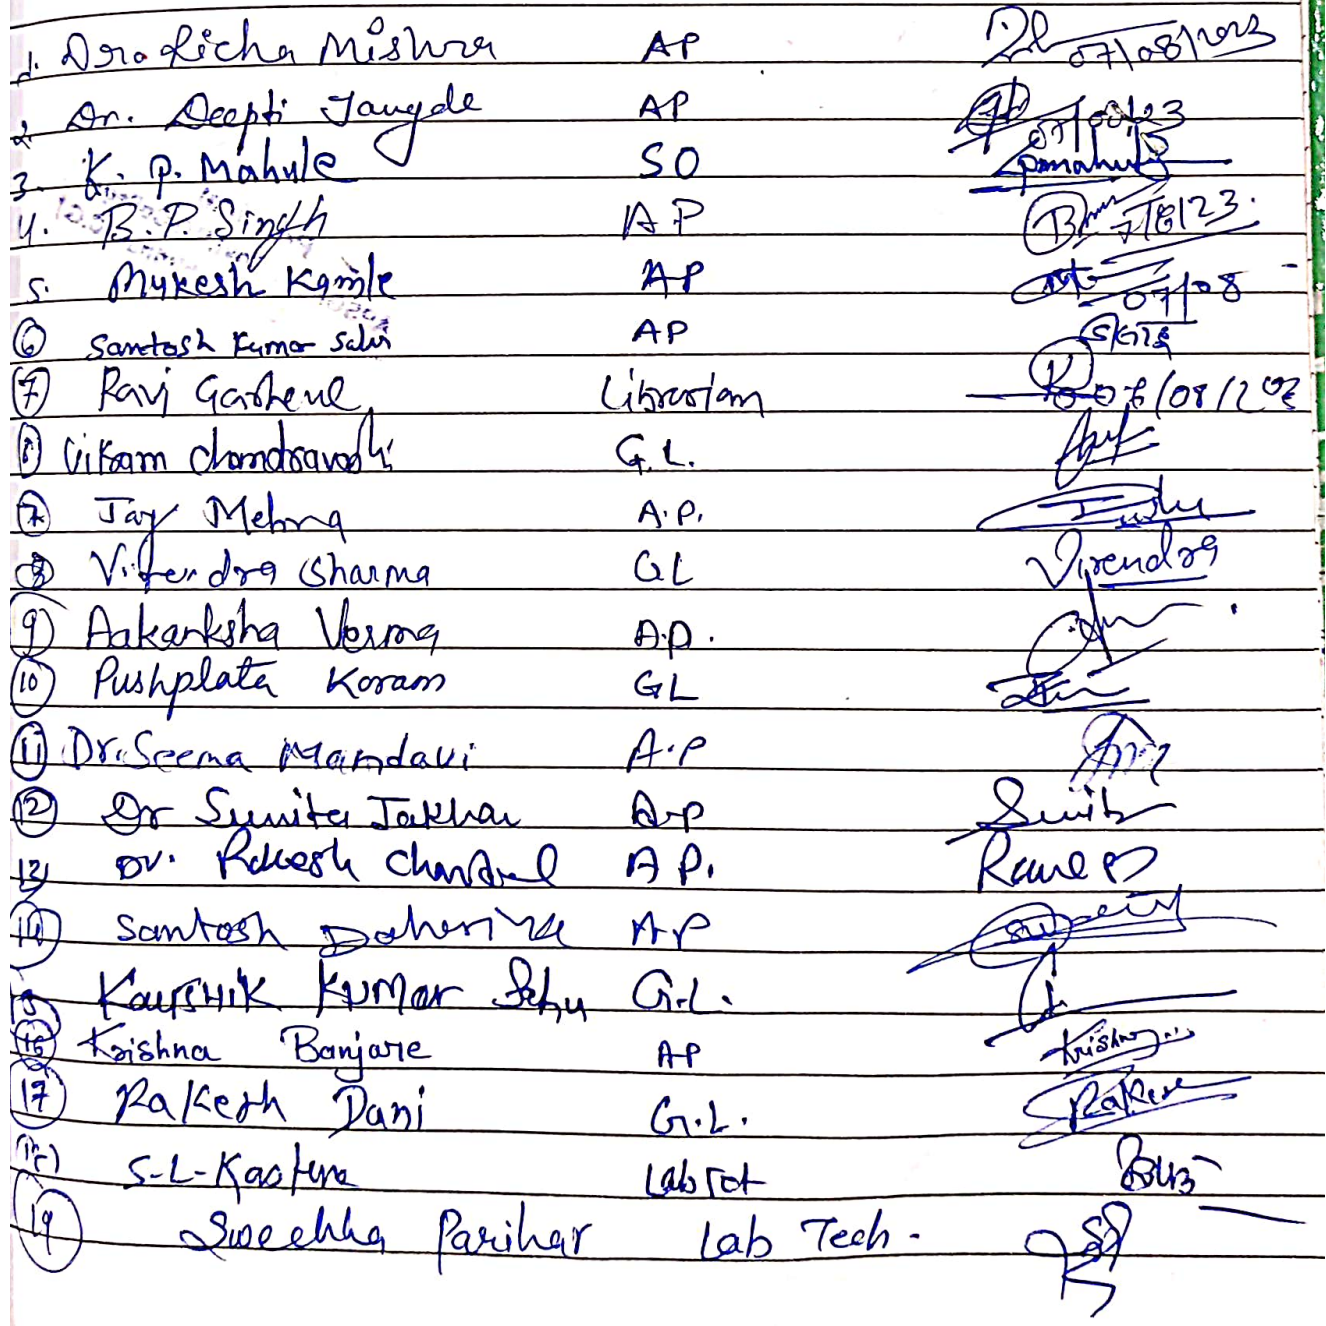 1. Dr. Richa Mishra AP 07/08/2023
2. Dr. Deepti Jangde AP 07/08/23
3. K. P. Mahule SO
4. B.P. Singh AP 7/8/23.
5. Mukesh Kamle AP 07/08
6 Santosh Kumar Sahu AP
7 Ravi Librarian 08/202
8 Vikram Chandravanshi G.L.
7 Jay Mehra A.P.
8 Virendra Sharma GL Virendra
9 Aakanksha Verma A.P.
10 Pushplata Koram GL
11 Dr. Seema Mandavi A.P
12 Dr Sunita Jakhar A.P Sunita
13 Dr. Rakesh Chandel A P.
14 Santosh Daheriya AP
15 KaushiK Kumar Sahu G.L.
16 Krishna Banjare AP Krishna
17 Rakesh Dani G.L. Rakesh
S-L- Lab
19 Sweekha Parihar Lab Tech.